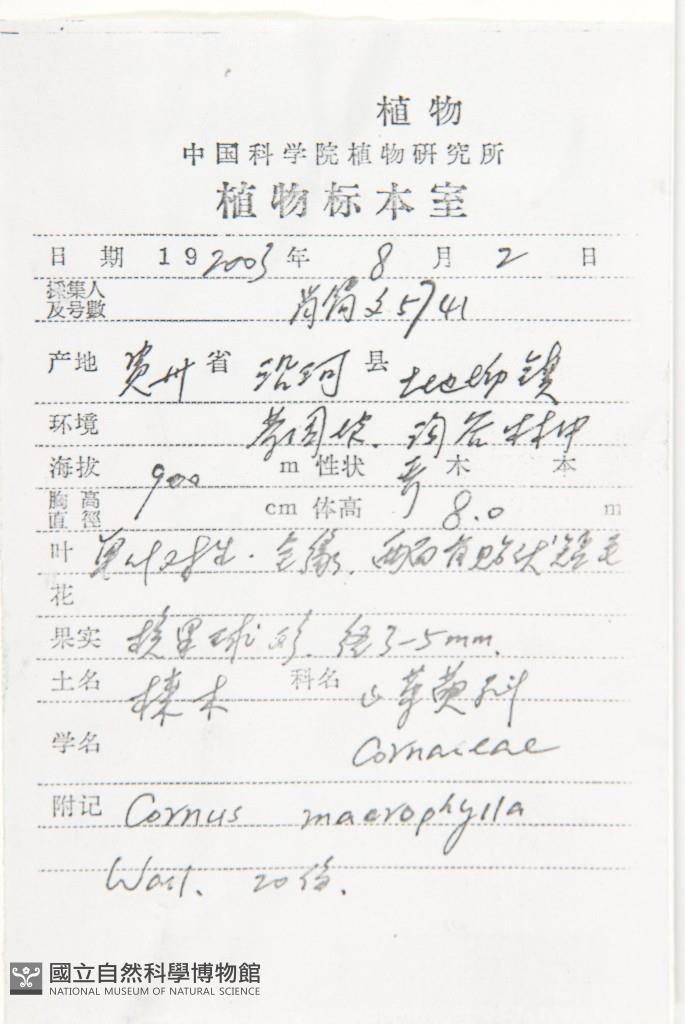 植物
中国科学院植物研究所
植物标本室
日期 19 2003年 8月 2日
採集人及号數 肖简文 5741
产地 贵州省 沿河县
环境 沟谷林中
海拔 900 m 性状 乔木 本
胸高直徑 cm 体高 8.0 m
叶 单叶对生. 全缘. 两面有贴伏短毛
花
果实 核果球形. 径3-5mm.
土名 梾木 科名 山茱萸科
学名 Cornaceae
附记 Cornus macrophylla
Wall. 20份.
國立自然科學博物館
NATIONAL MUSEUM OF NATURAL SCIENCE